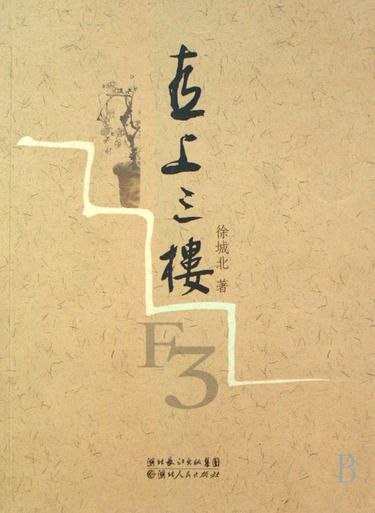 直上三樓
徐城北 著
F3
湖北长江出版集团
湖北人民出版社
B